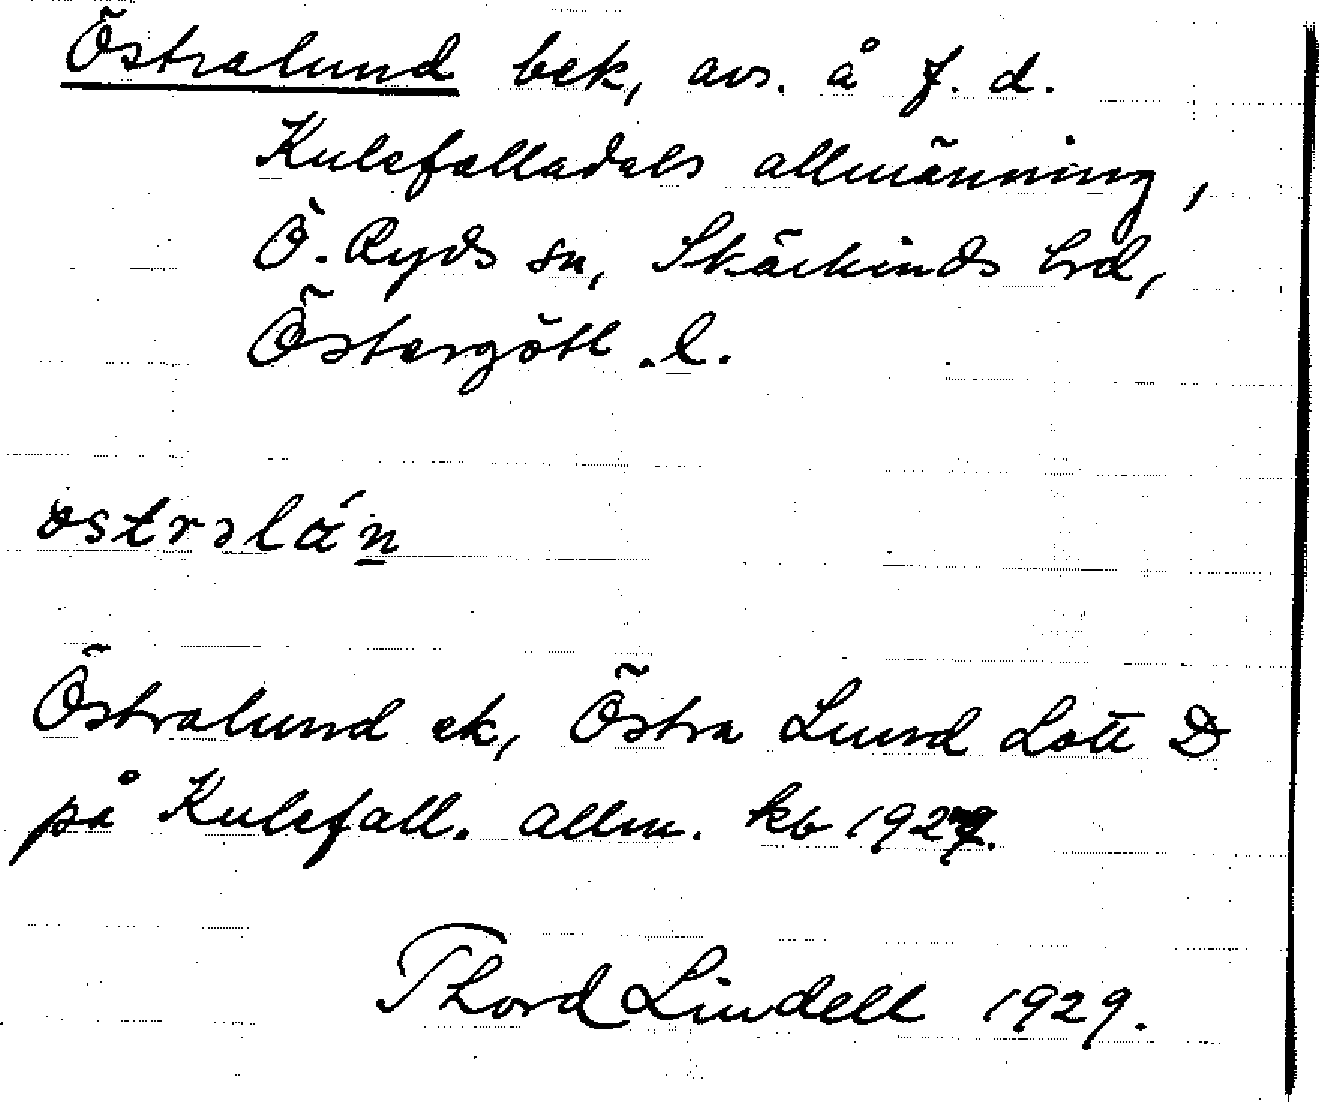 Östralund bek, avs. å f. d.
Kulefalladals allmänning,
Ö. Ryds sn, Skärkinds hrd,
Östergötl. l.
östrəlán
Östralund ek, Östra Lund Lott D
på Kulefall. allm. kb 1927.
Thord Lindell 1929.